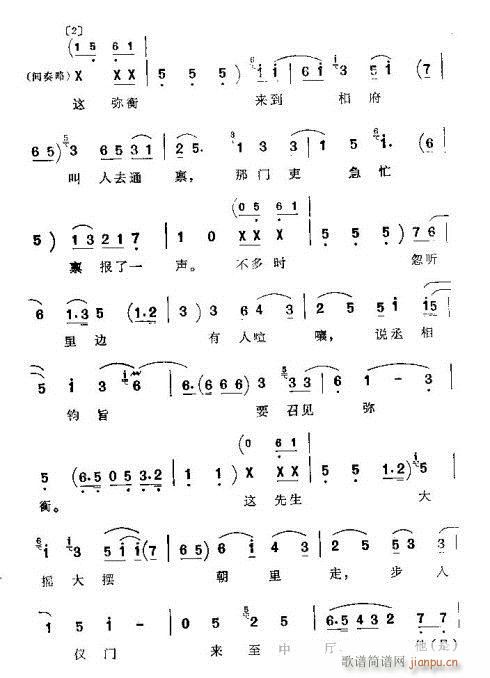 〔2〕
(1 5 6 1)
(间奏略) X X X (5 5 5) i i 6 i 3 5 i (7
这 弥 衡 来到 相 府
6 5) 3 6 5 3 1 2 5. 1 3 3 5 i. (6 5
叫 人 去 通 禀, 那 门 吏 急 忙
(0 5 6 1)
5) 1 3 2 1 7 1 0 X X X (5 5 5) 7 6
禀 报 了 一 声。 不 多 时 忽 听
6 1.3 5 (1.2 3) 3 6 4 3 2 5 i i5
里 边 有 人 喧 嚷, 说 丞 相
5 i 3 6 (6.6 6 6) 3 3 3 6 i - 3
钧 旨 要 召 见 弥
(0 6 1
5 (6.5 0 5 3.2 1 1) X X X 5 5 1.2) 5
衡。 这 先 生 大
i 3 5 i i (7 6 5) 6 i 3 4 2 5 5 1
摇 大 摆 朝 里 走, 步 入
1 5 - 0 5 2 5 6.5 4 3 2 7 7
仪 门 来 至 中 厅。 他(是)
歌谱简谱网
jianpu.cn